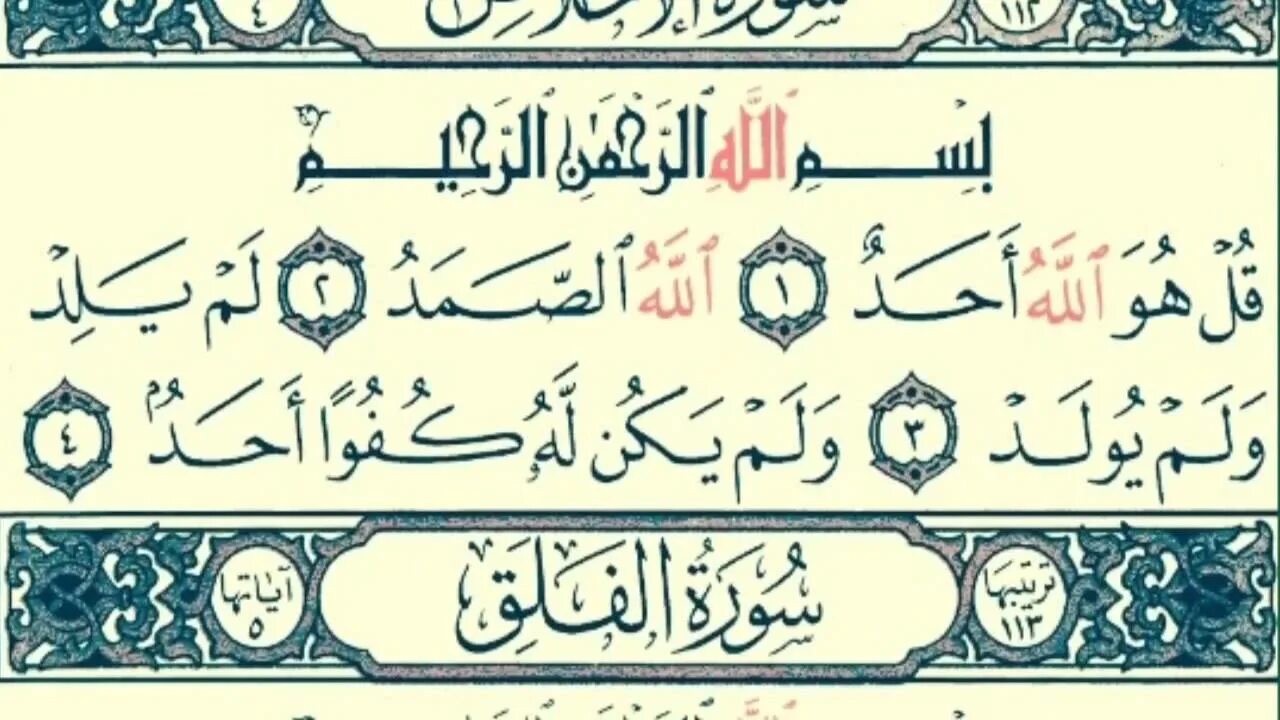 سورة الإخلاص
٤
١١٢
بِسْمِ ٱللَّهِ ٱلرَّحْمَٰنِ ٱلرَّحِيمِ
قُلْ هُوَ ٱللَّهُ أَحَدٌ ١ ٱللَّهُ ٱلصَّمَدُ ٢ لَمْ يَلِدْ
وَلَمْ يُولَدْ ٣ وَلَمْ يَكُن لَّهُۥ كُفُوًا أَحَدٌۢ ٤
ترتيبها ١١٣
سُورَةُ الفَلَقِ
آياتها ٥